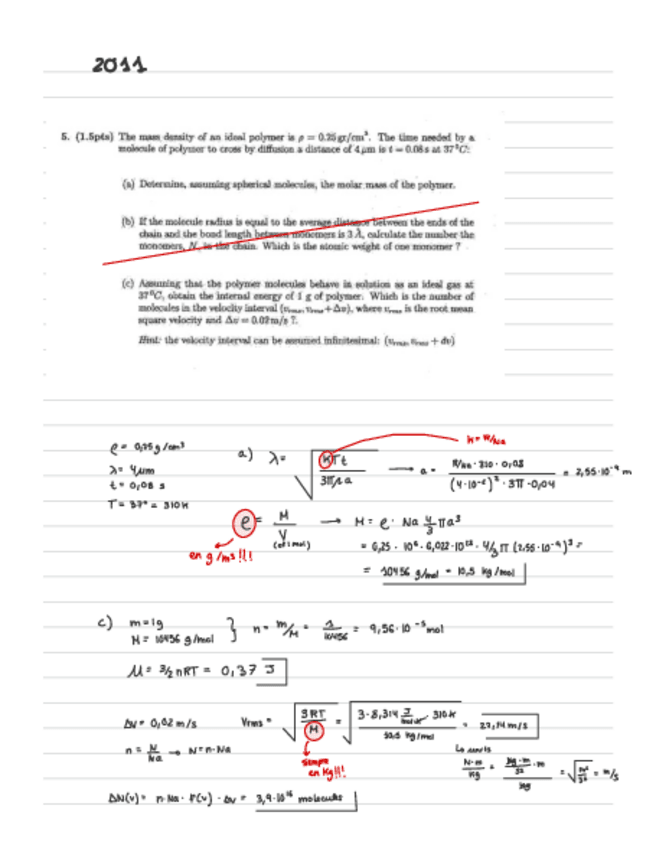 2011
5. (1.5pts) The mass density of an ideal polymer is ρ = 0.25 gr/cm³. The time needed by a
molecule of polymer to cross by diffusion a distance of 4 μm is t = 0.08 s at 37°C:
(a) Determine, assuming spherical molecules, the molar mass of the polymer.
(b) If the molecule radius is equal to the average distance between the ends of the
chain and the bond length between monomers is 3 Å, calculate the number the
monomers, N, in the chain. Which is the atomic weight of one monomer ?
(c) Assuming that the polymer molecules behave in solution as an ideal gas at
37°C, obtain the internal energy of 1 g of polymer. Which is the number of
molecules in the velocity interval (vrms, vrms + Δv), where vrms is the root mean
square velocity and Δv = 0.02 m/s ?.
Hint: the velocity interval can be assumed infinitesimal: (vrms, vrms + dv)
k = R/Na
ρ = 0,25 g/cm³
λ = 4μm
t = 0,08 s
T = 37° = 310 K
a) λ = √ KTt / 3πηa → a = R/Na · 310 · 0,08 / (4·10⁻⁶)² · 3π · 0,04 = 2,55·10⁻⁹ m
ρ = M / V (of 1 mol) → M = ρ · Na 4/3 πa³
en g/m³!!!
= 0,25 · 10⁶ · 6,022·10²³ · 4/3 π (2,55·10⁻⁹)³ =
= 10456 g/mol = 10,5 kg/mol
c) m = 1g
M = 10456 g/mol } n = m/M = 1/10456 = 9,56·10⁻⁵ mol
U = 3/2 nRT = 0,37 J
Δv = 0,02 m/s Vrms = √ 3RT / M = √ 3·8,314 J/molK · 310K / 10,5 kg/mol = 27,14 m/s
n = N/Na → N = n·Na
siempre
en Kg!!!
N·m / kg = kg·m/s² · m / kg = √ m²/s² = m/s
ΔN(v) = n·Na · F(v) · Δv = 3,9·10¹⁶ molecules